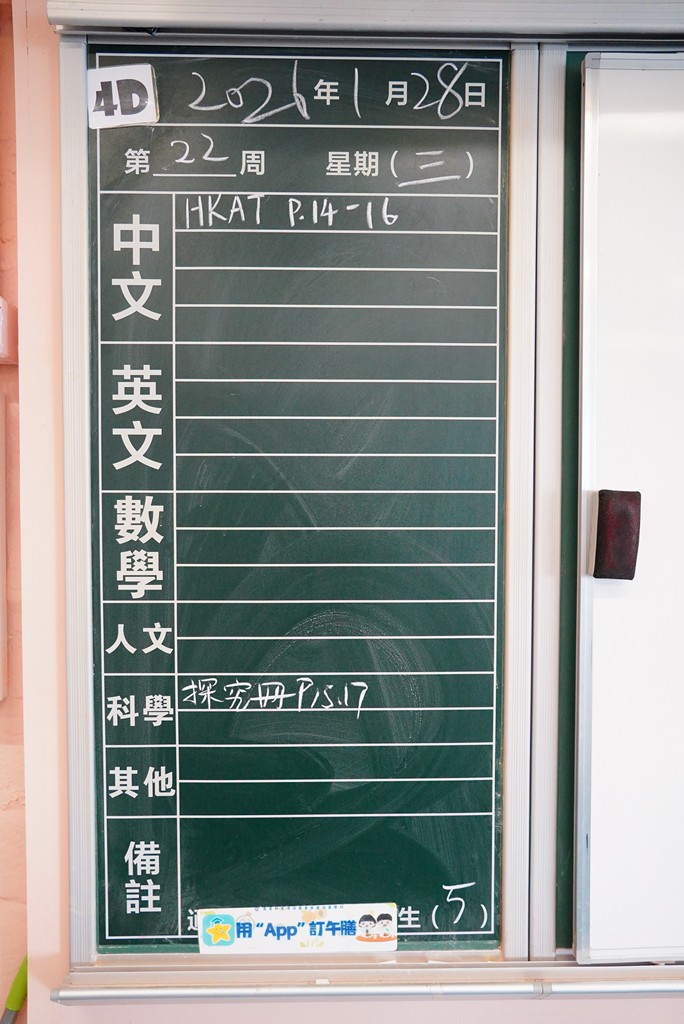 4D 2026年1月28日
第22周 星期(三)
中文 HKAT P.14-16
英文
數學
人文
科學 探究冊P15.17
其他
備註
生(5)
用“App”訂午膳